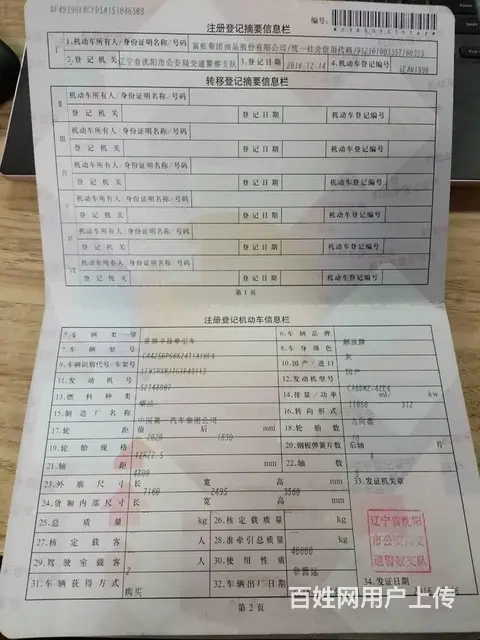 注册登记摘要信息栏
编号:
I 1.机动车所有人/身份证明名称/号码
2.登记机关 辽宁省沈阳市公安局交通警察支队 3.登记日期 2016-12-14 4.机动车登记编号
转移登记摘要信息栏
II 机动车所有人/身份证明名称/号码
登记机关 登记日期 机动车登记编号
III 机动车所有人/身份证明名称/号码
登记机关 登记日期 机动车登记编号
IV 机动车所有人/身份证明名称/号码
登记机关 登记日期 机动车登记编号
V 机动车所有人/身份证明名称/号码
登记机关 登记日期 机动车登记编号
VI 机动车所有人/身份证明名称/号码
登记机关 登记日期 机动车登记编号
VII 机动车所有人/身份证明名称/号码
登记机关 登记日期 机动车登记编号
第1页
注册登记机动车信息栏
5.车辆类型 重型半挂牵引车 6.车辆品牌 解放牌
7.车辆型号 8.车身颜色 灰
9.车辆识别代号/车架号 10.国产/进口 国产
11.发动机号 52748907 12.发动机型号
13.燃料种类 柴油 14.排量/功率 ml/ kw
15.制造厂名称 中国第一汽车集团公司 16.转向形式 方向盘
17.轮距 前 2020 后 1830 mm 18.轮胎数 10
19.轮胎规格 12R22.5 20.钢板弹簧片数 后轴 片
21.轴距 mm 22.轴数 3
23.外廓尺寸 长 7160 宽 2495 高 3560 mm 33.发证机关章
24.货厢内部尺寸 长 宽 高 mm
25.总质量 kg 26.核定载质量 kg
27.核定载客 人 28.准牵引总质量 40000 kg
29.驾驶室载客 2 人 30.使用性质 非营运
31.车辆获得方式 购买 32.车辆出厂日期 34.发证日期
辽宁省沈阳
市公安局交
通警察支队
第2页
百姓网用户上传